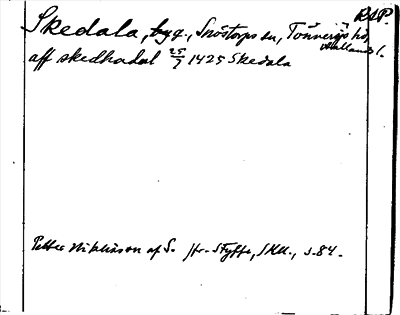 RSP.
Skedala, byg., Snöstorps sn, Tönnersjö hd, Hallands l.
aff skedhadal 25/7 1425 Skedala
Petter Niklisson af S. jfr. Styffe, SKU., s. 84.